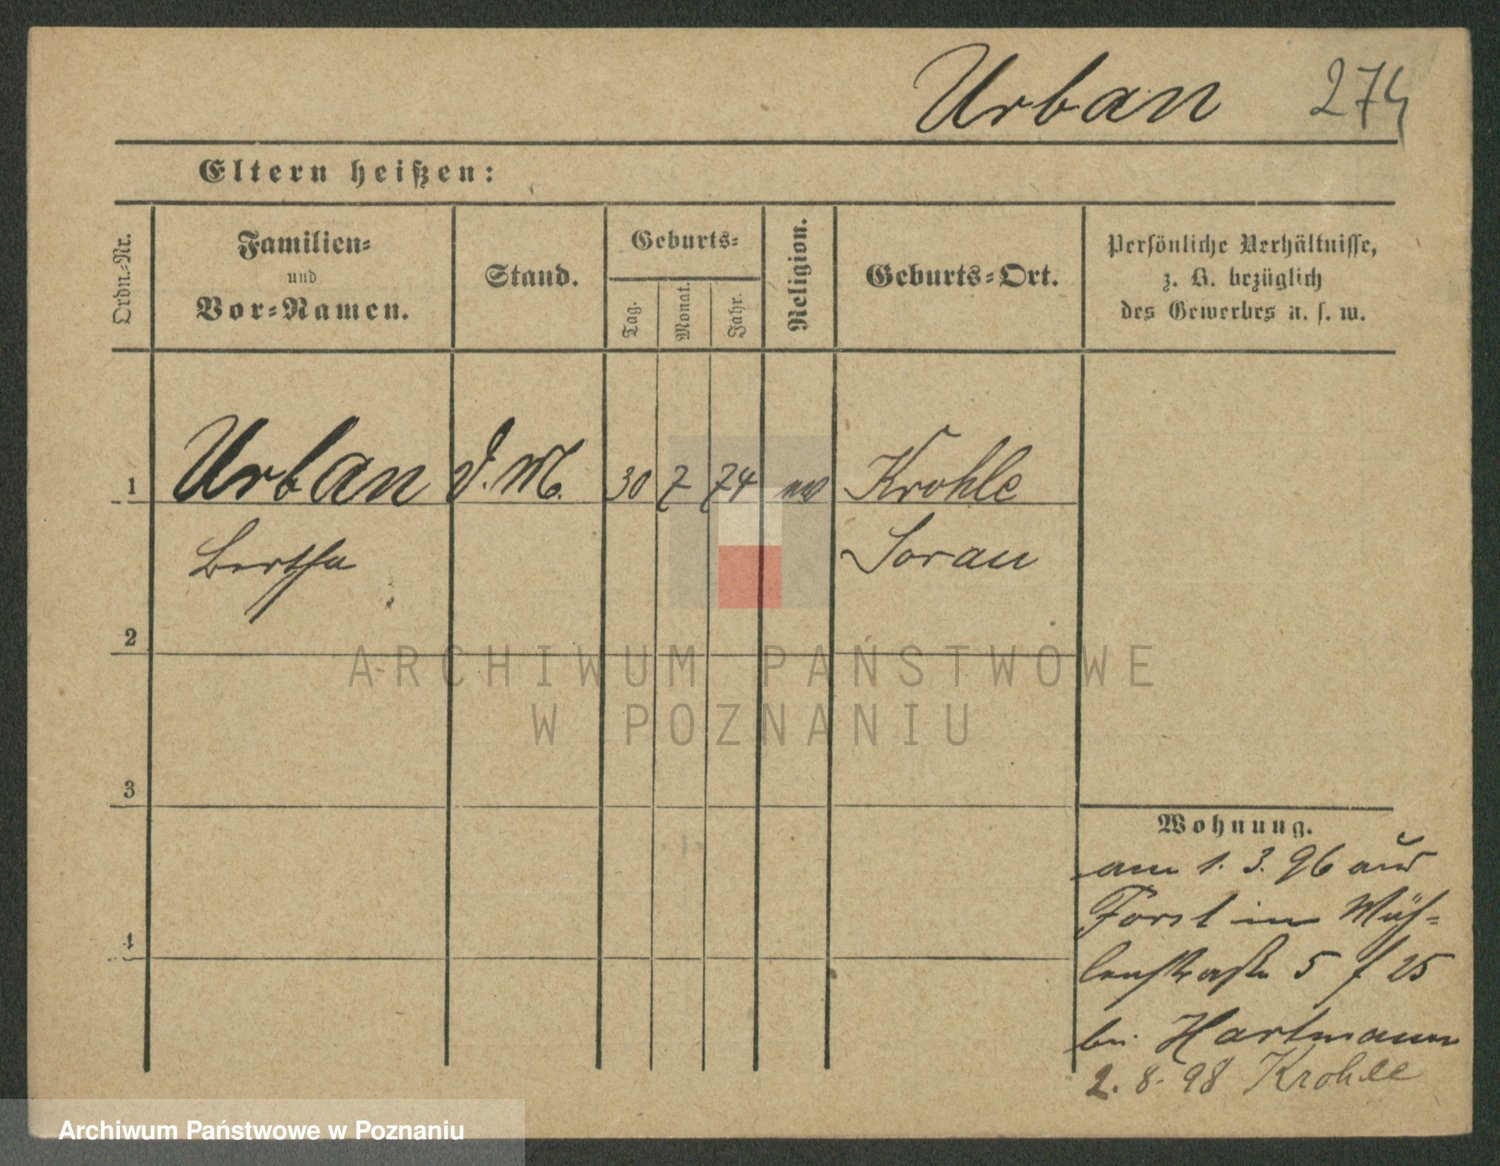 Urban 274
Eltern heißen:
Ordn.-Nr.
Familien-
und
Vor-Namen.
Stand.
Geburts-
Tag.
Monat.
Jahr.
Religion.
Geburts-Ort.
Persönliche Verhältnisse,
z. B. bezüglich
des Gewerbes u. s. w.
1 Urban D.M. 30 7 74 ev Krohle
Bertha Sorau
2
3
4
Wohnung.
am 1. 3. 96 aus
Forst in Müh-
lenstraße 5 f 25
bei Hartmann
2. 8. 98 Krohle
ARCHIWUM PAŃSTWOWE
W POZNANIU
Archiwum Państwowe w Poznaniu